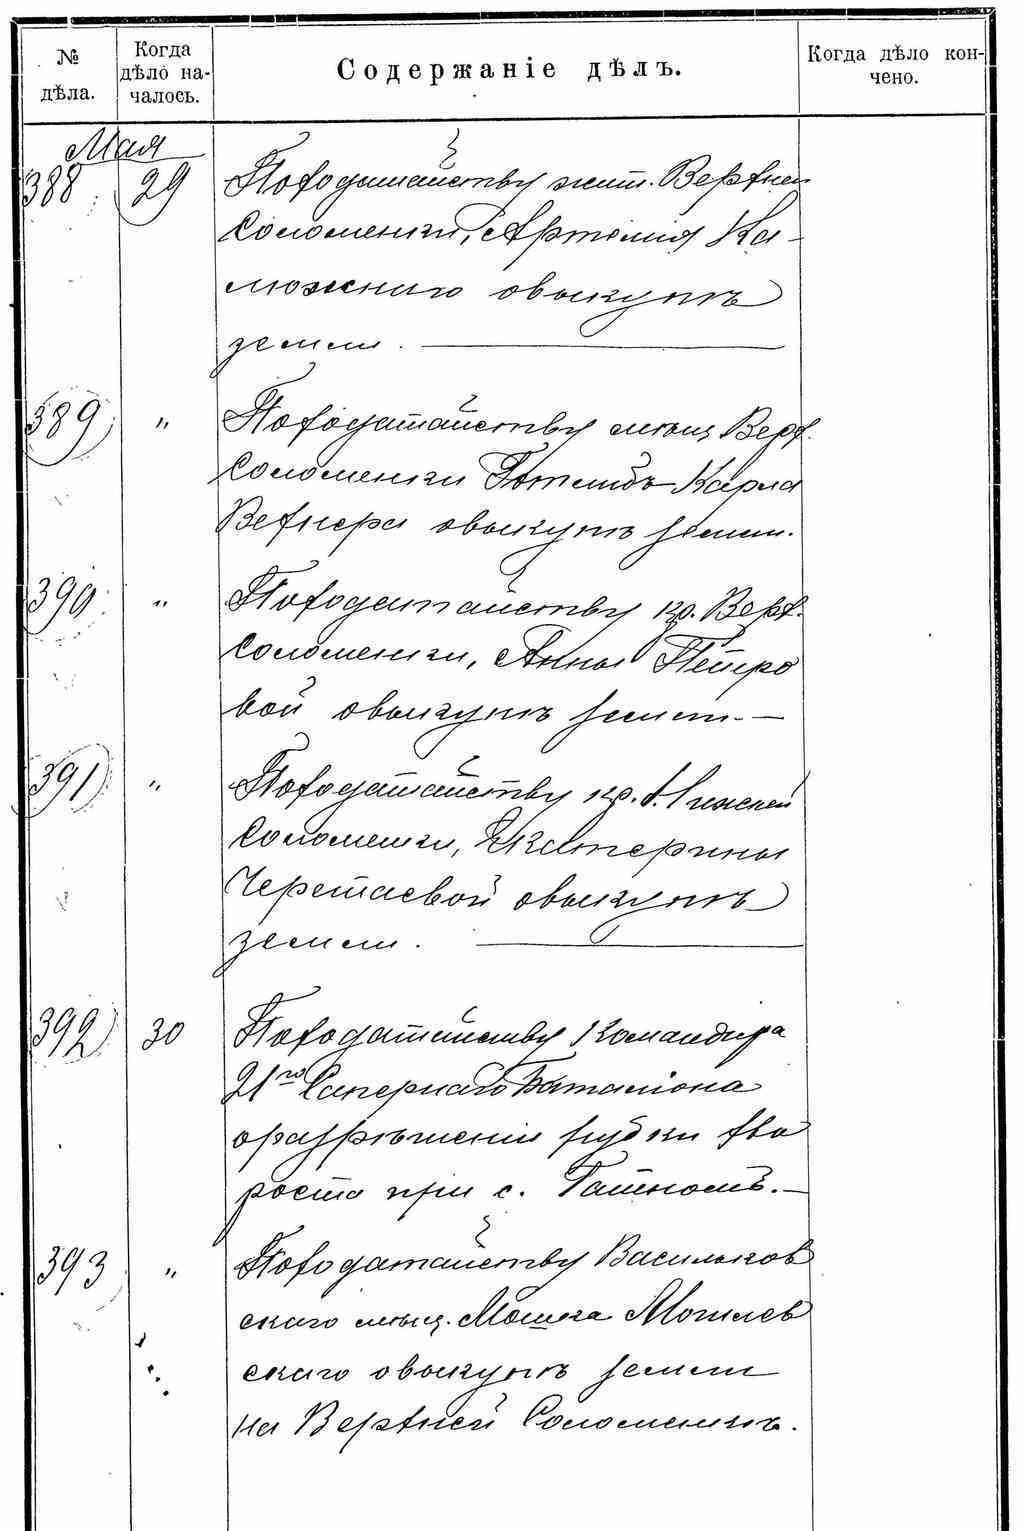 № дѣла.
Когда дѣло на-
чалось.
Содержаніе дѣлъ.
Когда дѣло кон-
чено.
Мая
388 29 Походатайству жит. Верхней
Соломенки, Артемія Ка-
можнаго овыкупѣ
земли.
389 " Походатайству мѣщ Верх.
Соломенки Готлибъ Карла
Вегнера овыкупѣ земли.
390 " Походатайству кр. Верх.
Соломенки, Анны Петро
вой овыкупѣ земли.—
391 " Походатайству кр. Нижней
Соломенки, Екатерины
овыкупѣ
земли.
392 30 Походатайству Командира
21го Сапернаго Баталіона
оразрѣшеніи рубки хво
роста при с. Гатномъ.—
393 " Походатайству Васильков
скаго мѣщ. Мошка Могилев
скаго овыкупѣ земли
на Верхней Соломенкѣ.